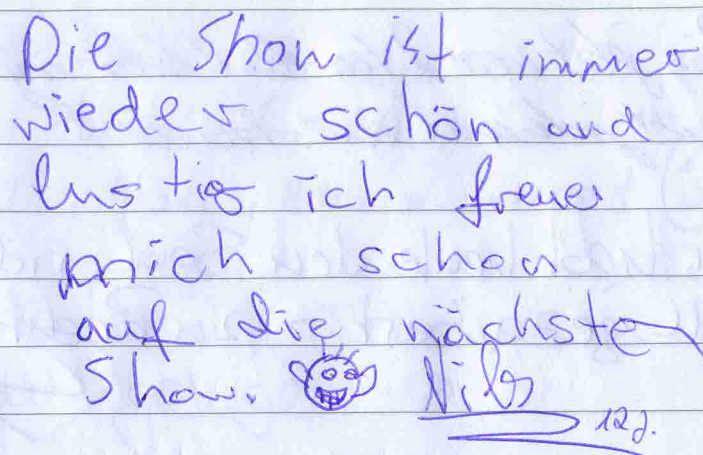 Die Show ist immer
wieder schön und
lustig ich freue
mich schon
auf die nächste
Show. Nils
12J.